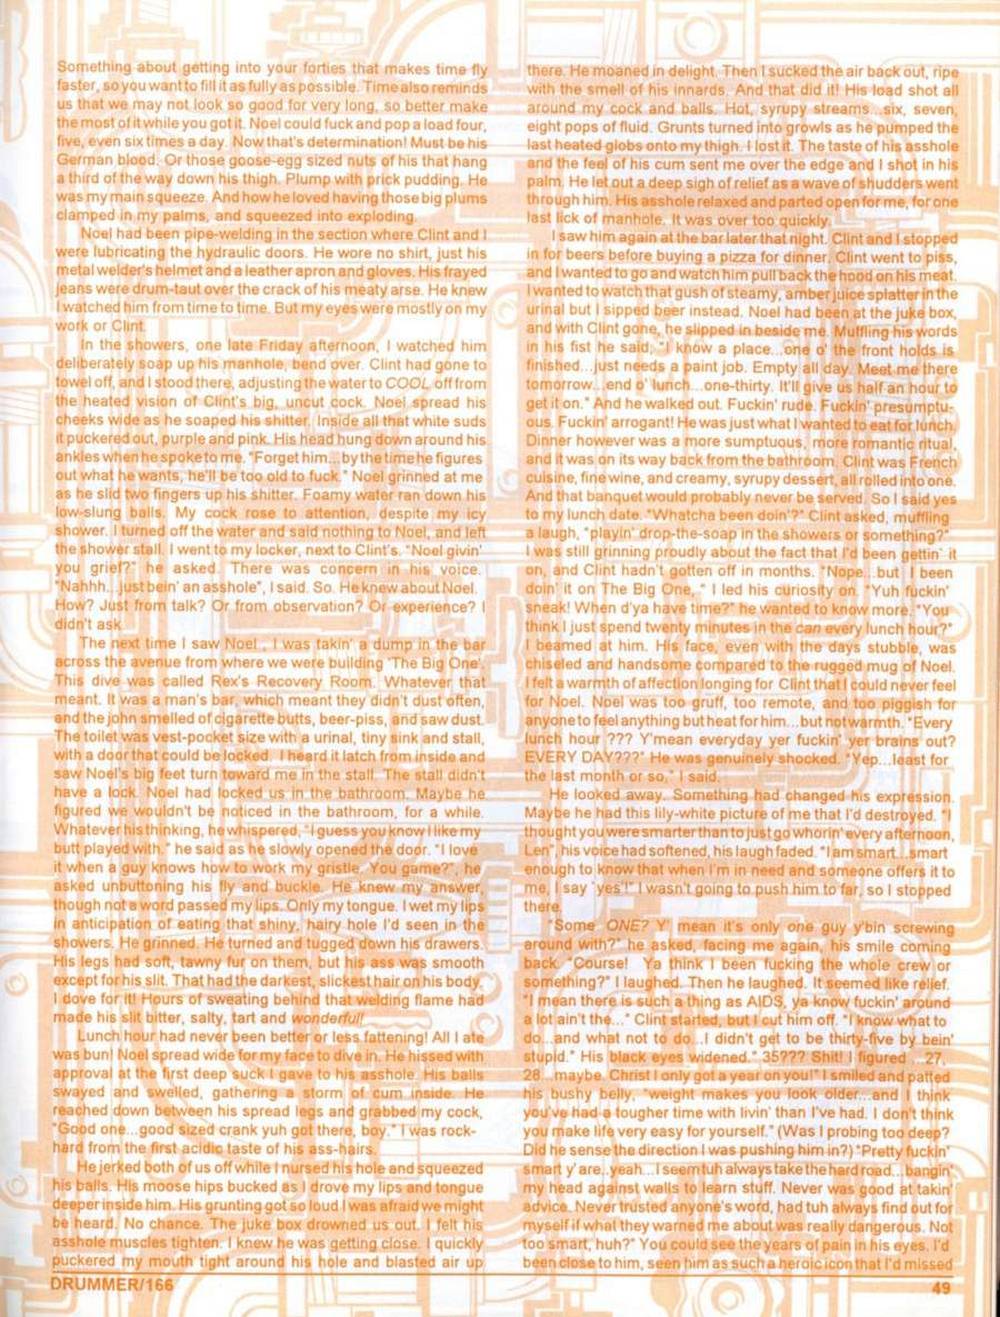 Something about getting into your forties that makes time fly
faster, so you want to fill it as fully as possible. Time also reminds
us that we may not look so good for very long, so better make
the most of it while you got it. Noel could fuck and pop a load four,
five, even six times a day. Now that's determination! Must be his
German blood. Or those goose-egg sized nuts of his that hang
a third of the way down his thigh. Plump with prick pudding. He
was my main squeeze. And how he loved having those big plums
clamped in my palms, and squeezed into exploding.
Noel had been pipe-welding in the section where Clint and I
were lubricating the hydraulic doors. He wore no shirt, just his
metal welder's helmet and a leather apron and gloves. His frayed
jeans were drum-taut over the crack of his meaty arse. He knew
I watched him from time to time. But my eyes were mostly on my
work or Clint.
In the showers, one late Friday afternoon, I watched him
deliberately soap up his manhole, bend over. Clint had gone to
towel off, and I stood there, adjusting the water to COOL off from
the heated vision of Clint's big, uncut cock. Noel spread his
cheeks wide as he soaped his shitter. Inside all that white suds
it puckered out, purple and pink. His head hung down around his
ankles when he spoke to me. "Forget him...by the time he figures
out what he wants, he'll be too old to fuck." Noel grinned at me
as he slid two fingers up his shitter. Foamy water ran down his
low-slung balls. My cock rose to attention, despite my icy
shower. I turned off the water and said nothing to Noel, and left
the shower stall. I went to my locker, next to Clint's. "Noel givin'
you grief?" he asked. There was concern in his voice.
"Nahhh...just bein' an asshole", I said. So. He knew about Noel.
How? Just from talk? Or from observation? Or experience? I
didn't ask.
The next time I saw Noel , I was takin' a dump in the bar
across the avenue from where we were building 'The Big One'.
This dive was called Rex's Recovery Room. Whatever that
meant. It was a man's bar, which meant they didn't dust often,
and the john smelled of cigarette butts, beer-piss, and saw dust.
The toilet was vest-pocket size with a urinal, tiny sink and stall,
with a door that could be locked. I heard it latch from inside and
saw Noel's big feet turn toward me in the stall. The stall didn't
have a lock. Noel had locked us in the bathroom. Maybe he
figured we wouldn't be noticed in the bathroom, for a while.
Whatever his thinking, he whispered, "I guess you know I like my
butt played with." he said as he slowly opened the door. "I love
it when a guy knows how to work my gristle. You game?", he
asked unbuttoning his fly and buckle. He knew my answer,
though not a word passed my lips. Only my tongue. I wet my lips
in anticipation of eating that shiny, hairy hole I'd seen in the
showers. He grinned. He turned and tugged down his drawers.
His legs had soft, tawny fur on them, but his ass was smooth
except for his slit. That had the darkest, slickest hair on his body.
I dove for it! Hours of sweating behind that welding flame had
made his slit bitter, salty, tart and wonderful!
Lunch hour had never been better or less fattening! All I ate
was bun! Noel spread wide for my face to dive in. He hissed with
approval at the first deep suck I gave to his asshole. His balls
swayed and swelled, gathering a storm of cum inside. He
reached down between his spread legs and grabbed my cock,
"Good one...good sized crank yuh got there, boy." I was rock-
hard from the first acidic taste of his ass-hairs.
He jerked both of us off while I nursed his hole and squeezed
his balls. His moose hips bucked as I drove my lips and tongue
deeper inside him. His grunting got so loud I was afraid we might
be heard. No chance. The juke box drowned us out. I felt his
asshole muscles tighten. I knew he was getting close. I quickly
puckered my mouth tight around his hole and blasted air up
there. He moaned in delight. Then I sucked the air back out, ripe
with the smell of his innards. And that did it! His load shot all
around my cock and balls. Hot, syrupy streams...six, seven,
eight pops of fluid. Grunts turned into growls as he pumped the
last heated globs onto my thigh. I lost it. The taste of his asshole
and the feel of his cum sent me over the edge and I shot in his
palm. He let out a deep sigh of relief as a wave of shudders went
through him. His asshole relaxed and parted open for me, for one
last lick of manhole. It was over too quickly.
I saw him again at the bar later that night. Clint and I stopped
in for beers before buying a pizza for dinner. Clint went to piss,
and I wanted to go and watch him pull back the hood on his meat.
I wanted to watch that gush of steamy, amber juice splatter in the
urinal but I sipped beer instead. Noel had been at the juke box,
and with Clint gone, he slipped in beside me. Muffling his words
in his fist he said, "I know a place...one o' the front holds is
finished...just needs a paint job. Empty all day. Meet me there
tomorrow...end o' lunch...one-thirty. It'll give us half an hour to
get it on." And he walked out. Fuckin' rude. Fuckin' presumptu-
ous. Fuckin' arrogant! He was just what I wanted to eat for lunch.
Dinner however was a more sumptuous, more romantic ritual,
and it was on its way back from the bathroom. Clint was French
cuisine, fine wine, and creamy, syrupy dessert, all rolled into one.
And that banquet would probably never be served. So I said yes
to my lunch date. "Whatcha been doin'?" Clint asked, muffling
a laugh, "playin' drop-the-soap in the showers or something?"
I was still grinning proudly about the fact that I'd been gettin' it
on, and Clint hadn't gotten off in months. "Nope...but I been
doin' it on The Big One, " I led his curiosity on. "Yuh fuckin'
sneak! When d'ya have time?" he wanted to know more. "You
think I just spend twenty minutes in the can every lunch hour?"
I beamed at him. His face, even with the days stubble, was
chiseled and handsome compared to the rugged mug of Noel.
I felt a warmth of affection longing for Clint that I could never feel
for Noel. Noel was too gruff, too remote, and too piggish for
anyone to feel anything but heat for him...but not warmth. "Every
lunch hour ??? Y'mean everyday yer fuckin' yer brains out?
EVERY DAY???" He was genuinely shocked. "Yep...least for
the last month or so," I said.
He looked away. Something had changed his expression.
Maybe he had this lily-white picture of me that I'd destroyed. "I
thought you were smarter than to just go whorin' every afternoon,
Len", his voice had softened, his laugh faded. "I am smart...smart
enough to know that when I'm in need and someone offers it to
me, I say 'yes'!" I wasn't going to push him to far, so I stopped
there.
"Some ONE? Y' mean it's only one guy y'bin screwing
around with?" he asked, facing me again, his smile coming
back. "Course! Ya think I been fucking the whole crew or
something?" I laughed. Then he laughed. It seemed like relief.
"I mean there is such a thing as AIDS, ya know fuckin' around
a lot ain't the..." Clint started, but I cut him off. "I know what to
do...and what not to do...I didn't get to be thirty-five by bein'
stupid." His black eyes widened." 35??? Shit! I figured ...27,
28...maybe. Christ I only got a year on you!" I smiled and patted
his bushy belly, "weight makes you look older...and I think
you've had a tougher time with livin' than I've had. I don't think
you make life very easy for yourself." (Was I probing too deep?
Did he sense the direction I was pushing him in?) "Pretty fuckin'
smart y' are..yeah...I seem tuh always take the hard road...bangin'
my head against walls to learn stuff. Never was good at takin'
advice. Never trusted anyone's word, had tuh always find out for
myself if what they warned me about was really dangerous. Not
too smart, huh?" You could see the years of pain in his eyes. I'd
been close to him, seen him as such a heroic icon that I'd missed
DRUMMER/166
49